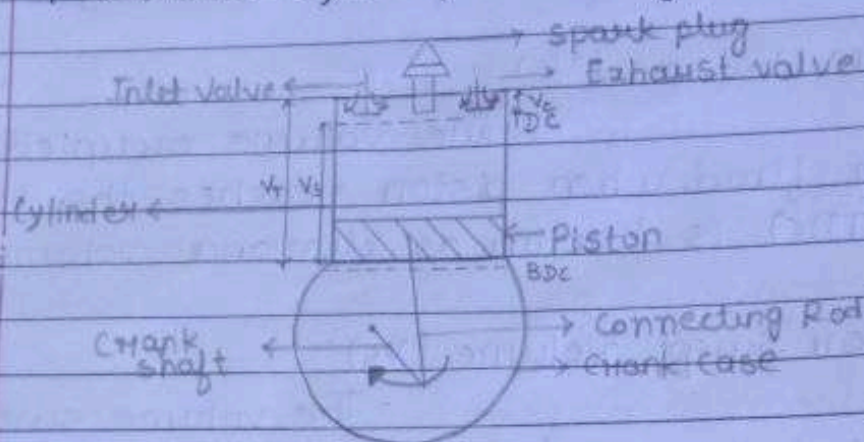 Spark plug
Inlet valve
Exhaust valve
Vc
TDC
VT Vs
Cylinder
Piston
BDC
Connecting Rod
Crank shaft
Crank case